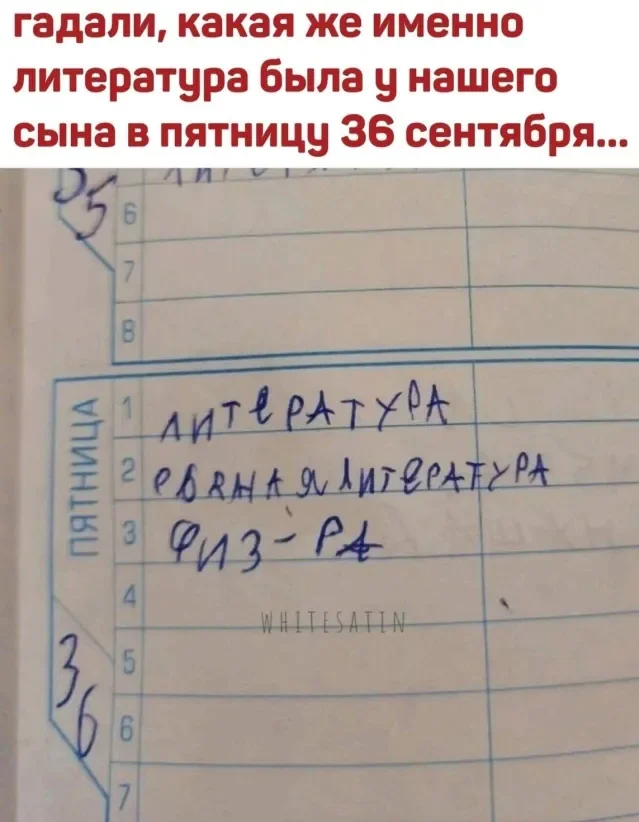 гадали, какая же именно
литература была у нашего
сына в пятницу 36 сентября...
35
6
7
8
ПЯТНИЦА
1 ЛИТЕРАТУРА
2 РВАНАЯ ЛИТЕРАТУРА
3 ФИЗ-РА
4
WHITESATIN
5
36
6
7